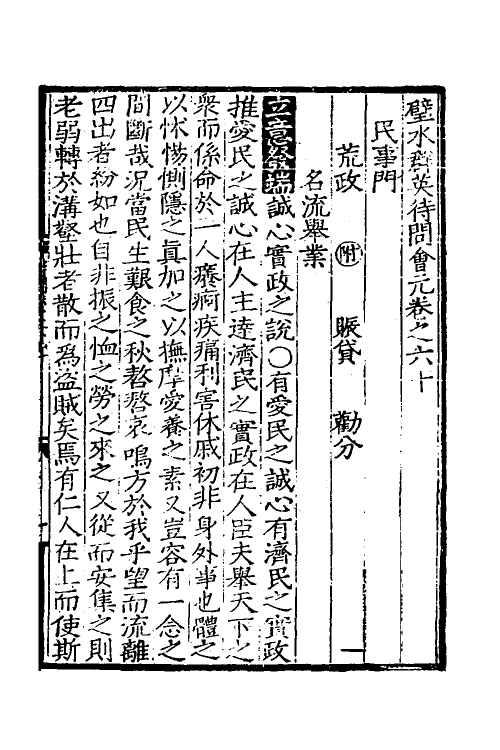 璧水群英待問會元卷之六十
民事門
荒政 附 賑貸 勸分
名流舉業
立意發端誠心實政之說○有愛民之誠心有濟民之實政
推愛民之誠心在人主達濟民之實政在人臣夫舉天下之
衆而係命於一人癢痾疾痛利害休戚初非身外事也體之
以怵惕惻隱之眞加之以撫摩愛養之素又豈容有一念之
間斷哉況當民生艱食之秋嗸嗸哀鳴方於我乎望而流離
四出者紛如也自非振之恤之勞之來之又從而安集之則
老弱轉於溝壑壯者散而爲盜賊矣焉有仁人在上而使斯
一